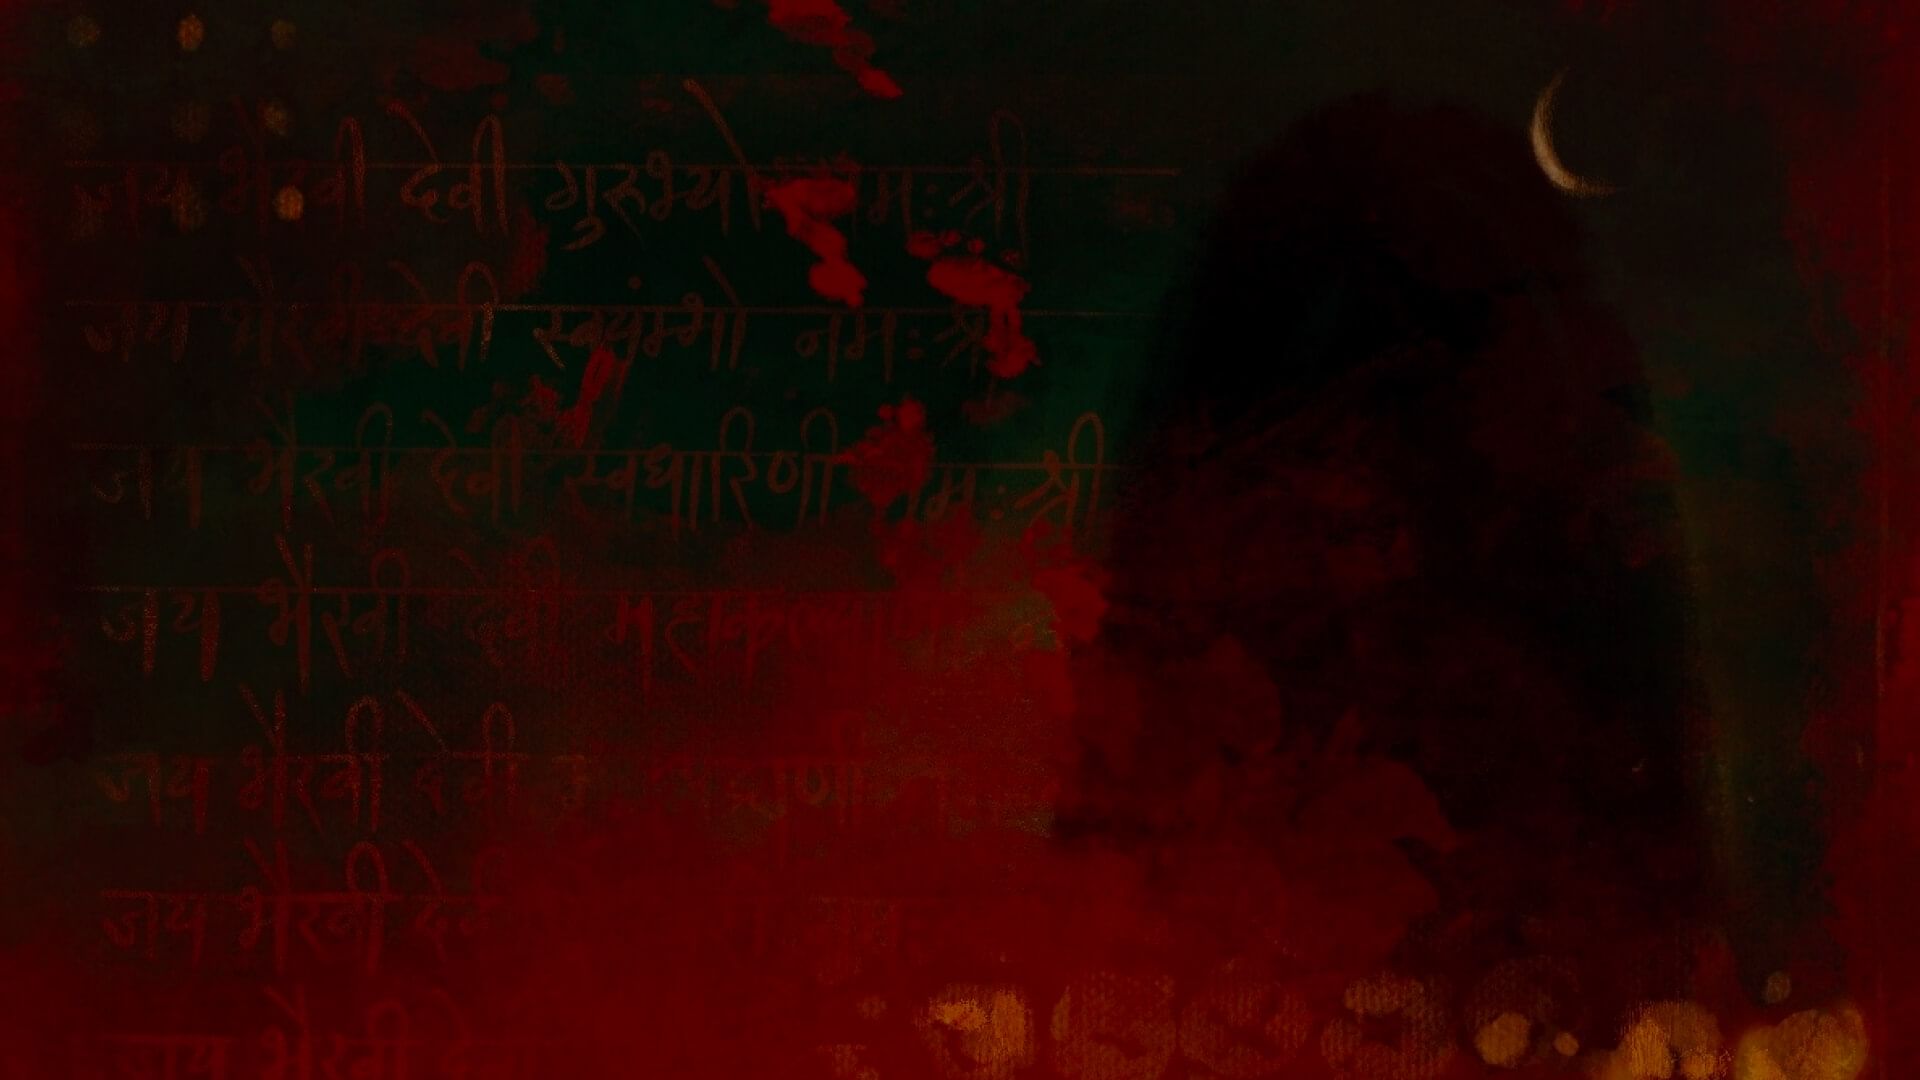 जय भैरवी देवी गुरुभ्यो नमः श्री
जय भैरवी देवी स्वयंम्भो नमः श्री
जय भैरवी देवी स्वधारिणी नमः श्री
जय भैरवी देवी महाकल्याणी
जय भैरवी देवी
जय भैरवी देवी
जय भैरवी देवी